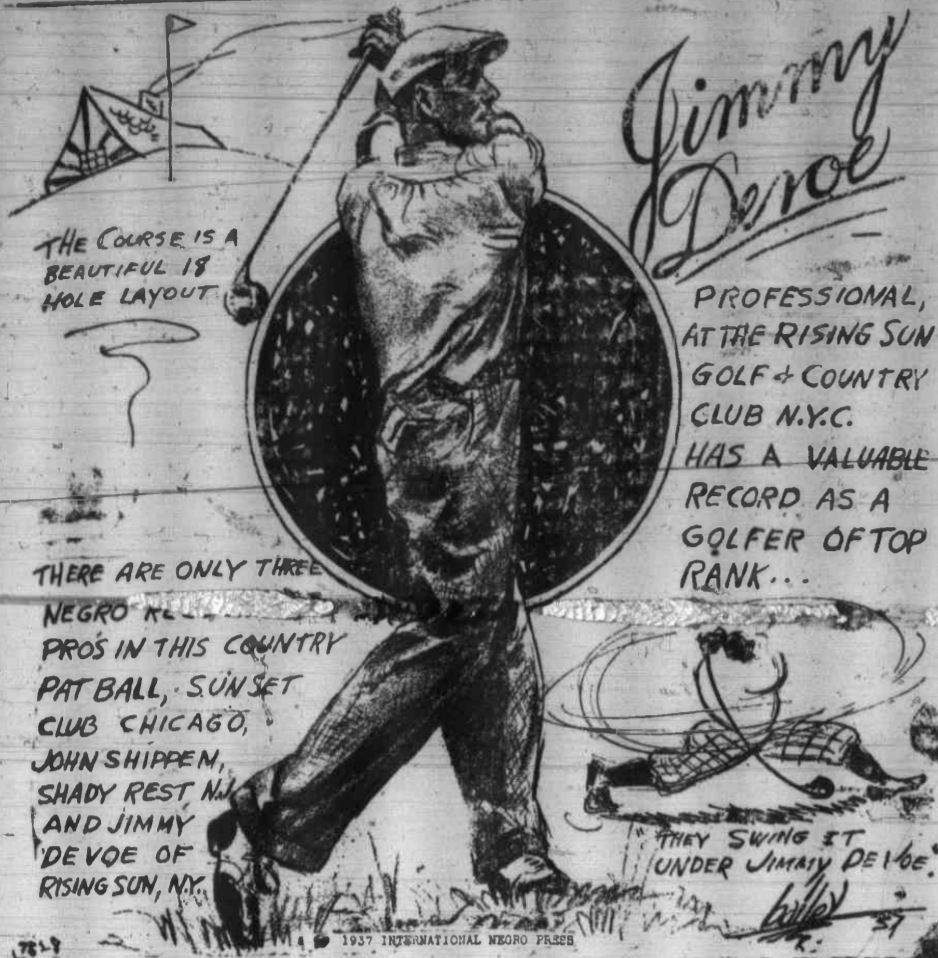 Jimmy
Devoe
THE COURSE IS A
BEAUTIFUL 18
HOLE LAYOUT
PROFESSIONAL,
AT THE RISING SUN
GOLF & COUNTRY
CLUB N.Y.C.
HAS A VALUABLE
RECORD AS A
GOLFER OF TOP
RANK...
THERE ARE ONLY THREE
NEGRO
PRO'S IN THIS COUNTRY
PAT BALL, SUNSET
CLUB CHICAGO,
JOHN SHIPPEN,
SHADY REST N.J.
AND JIMMY
DEVOE OF
RISING SUN, N.Y.
"THEY SWING IT
UNDER JIMMY DEVOE."
37
1937 INTERNATIONAL NEGRO PRESS